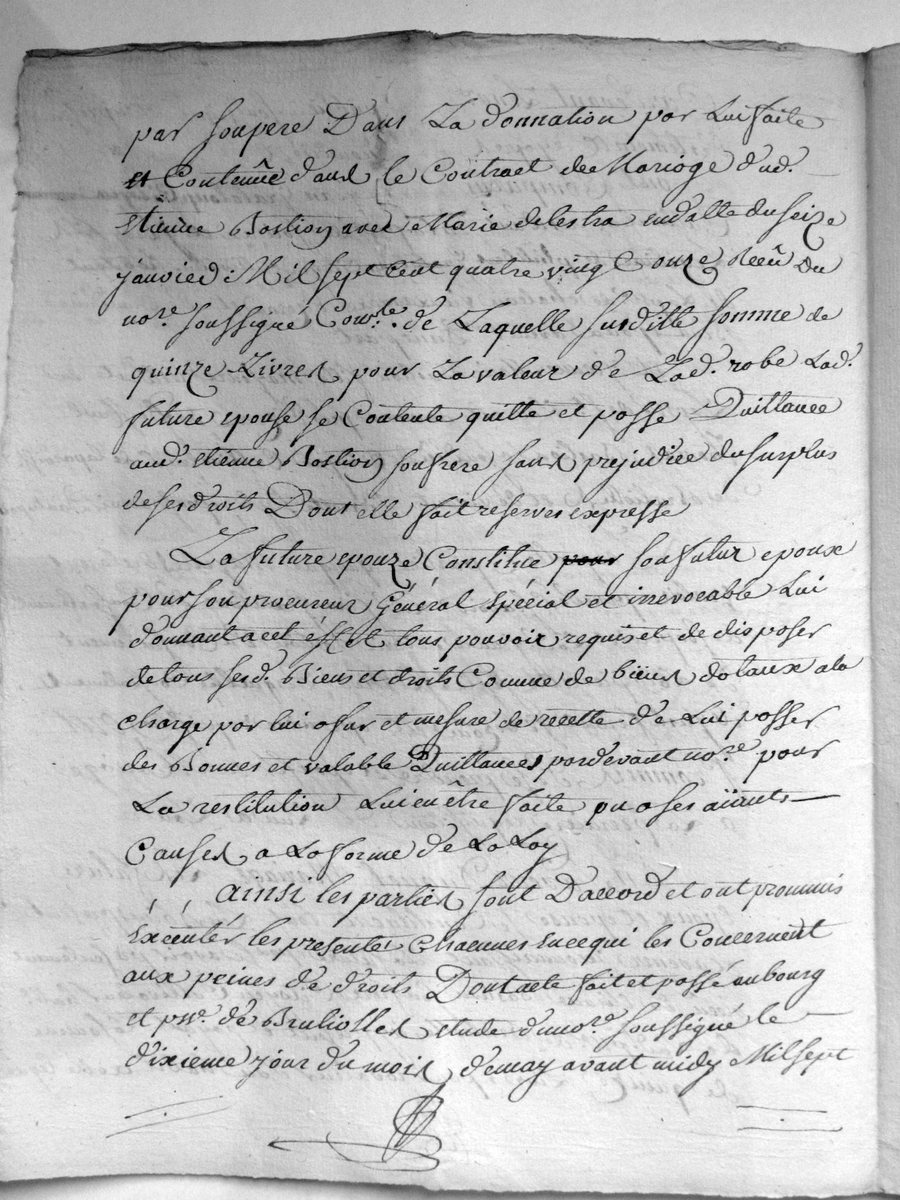 par son pere Dans La donnation par Lui faite
et Contenüe dans le Contract de Mariage dud.
etienne Bastion avec Marie delestra en datte du Seize
janvier Mil Sept Cent quatre vingt onze Receu Du
nore. soussigné Conle. de Laquelle susditte somme de
quinze Livres pour La valeur de Lad. robe Lad.
future epouse se Contente quitte et passe Quittance
aud. etienne Bastion son frere sans prejudice du surplus
de ses droits Dont elle fait reserves expresse
La future epouze Constitue pour son futur epoux
pour son procureur Général Spécial et irrevocable Lui
donnant a cet éffet tous pouvoir requis et de disposer
de tous sesd. Biens et droits Comme de biens dotaux a la
charge par lui a fur et mesure de recette de Lui passer
des Bonnes et valable Quittances pardevant nore. pour
La restitution Lui en être faite ou a ses aïants
Causes a La forme de La Loy
Ainsi les parties sont D'accord et ont prommis
éxécuter les presente Chacunes en ce qui les Concernent
aux peines de droits Dont acte fait et passé au bourg
et psse. de Brulliolles etude du nore. soussigné le
dixieme jour du mois de may avant midy Mil Sept